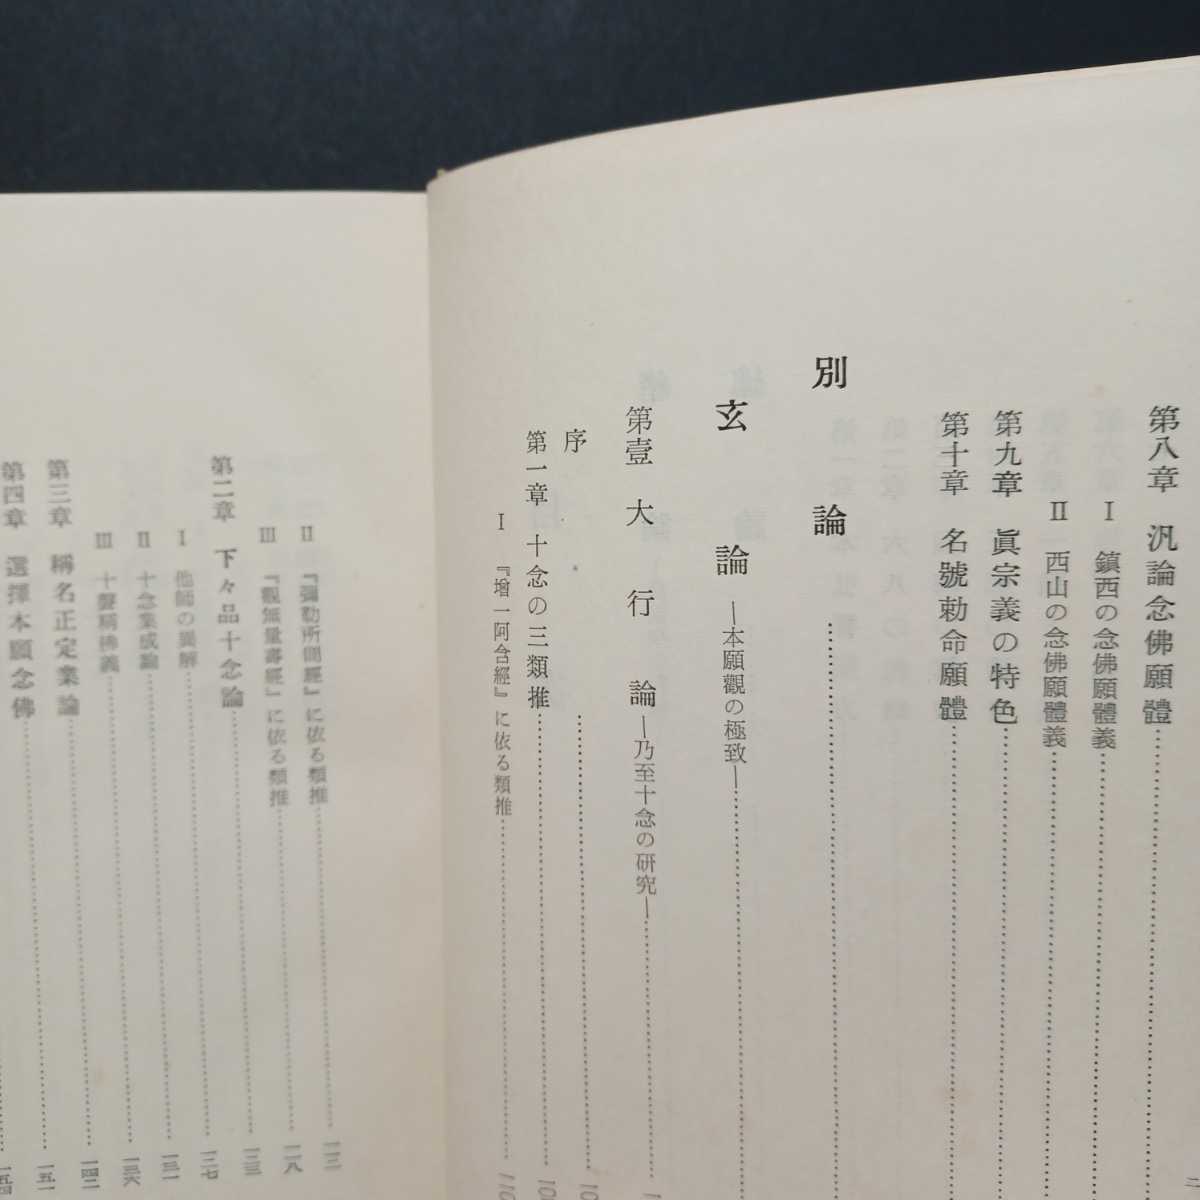 第八章　汎論念佛願體
Ⅰ　鎮西の念佛願體義
Ⅱ　西山の念佛願體義
第九章　眞宗義の特色
第十章　名號勅命願體
別論
玄論―本願觀の極致―
第壹　大行論―乃至十念の研究―
序
第一章　十念の三類推
Ⅰ　『增一阿含經』に依る類推
Ⅱ　『彌勒所問經』に依る類推 一一二
Ⅲ　『觀無量壽經』に依る類推 一一八
第二章　下々品十念論
Ⅰ　他師の異解
Ⅱ　十念業成論 一三一
Ⅲ　十聲稱佛義 一三六
第三章　稱名正定業論 一四二
第四章　選擇本願念佛 一五一